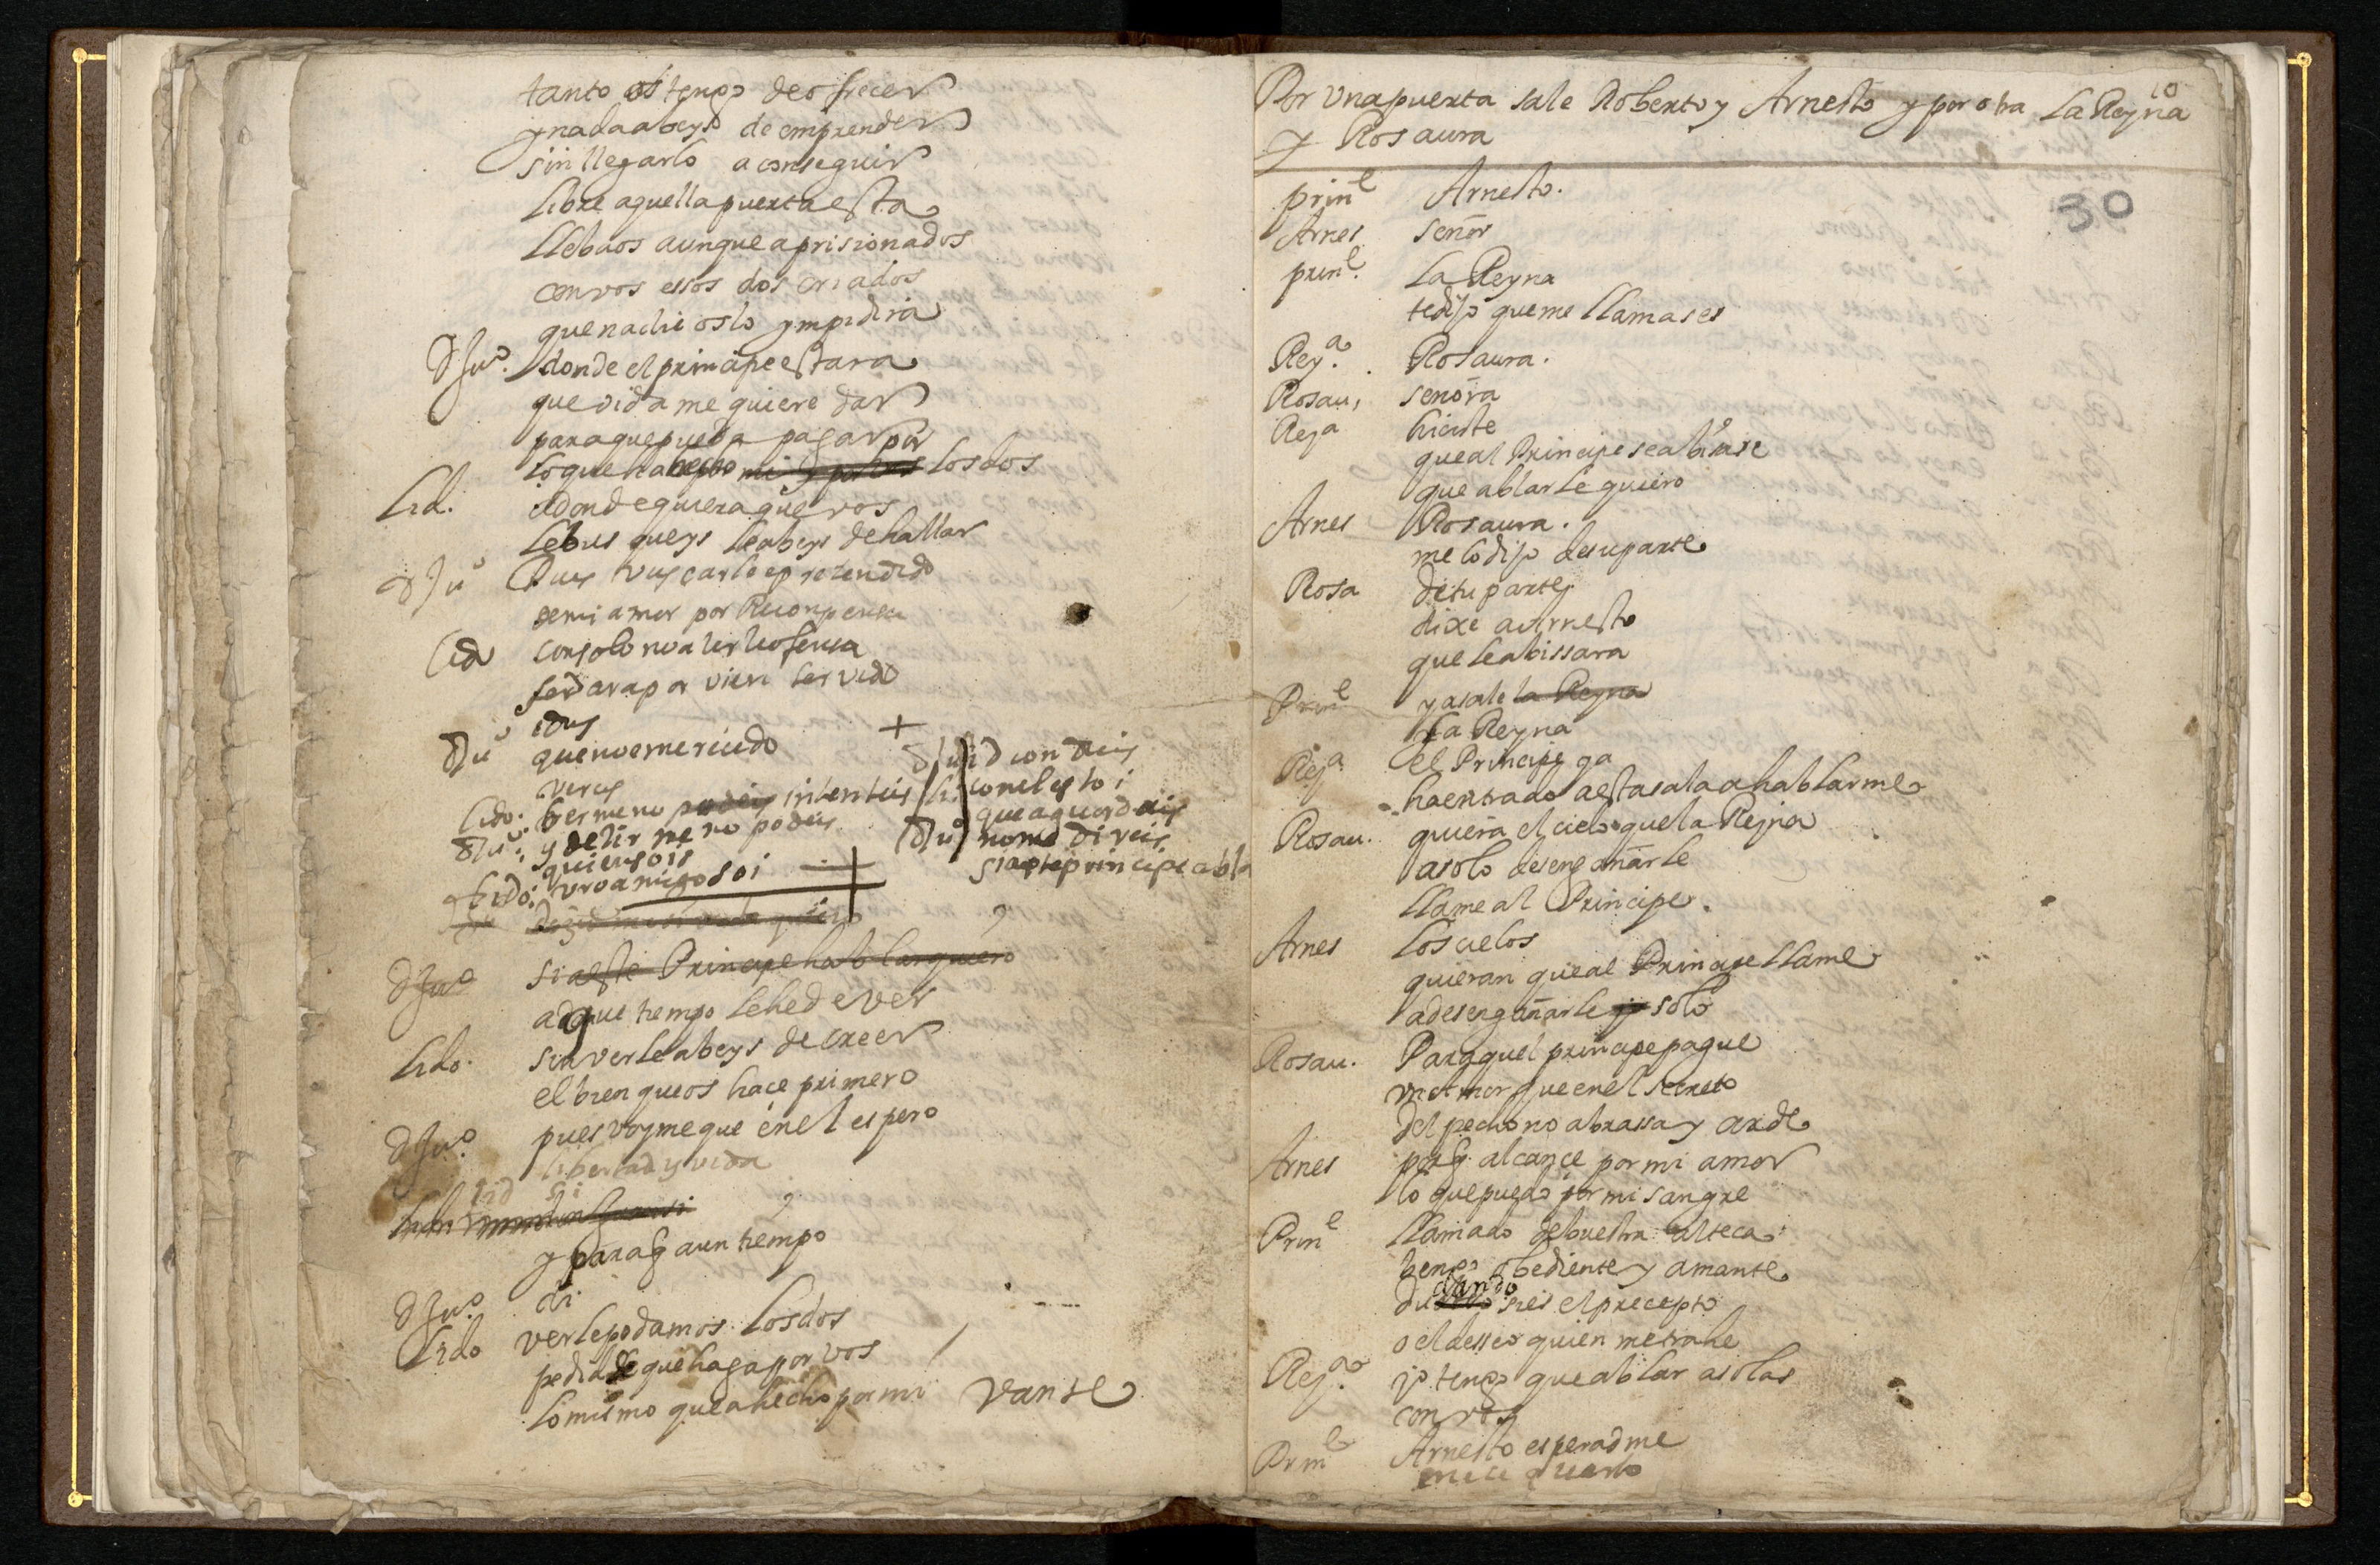 tanto os tengo de ofrecer
y nada abeys de emprender
sin llegarlo a conseguir
Libre aquella puerta esta
LLebaos aunque aprisionados
con vos essos dos criados
que nadie os lo ympidira
D Juº. donde el principe estara
que vida me quiere dar
para que pueda pagar por
Lo que ha hecho por mi los dos
Lid. adonde quiera que vos
Le bus queys le abeys de hallar
D Juº Pues vuscarle e pretendido
de mi amor por Recompensa
Lid con solo no acerle ofensa
se dara por vien servido
D Juº que no e merecido
veros
Lido. berme no intenteis
D Juº. y decirme no podeis
quien sois
Lido. vro amigo soi
+
D Juº id con dios
Li con el estoi
que aguardais
D Juº no me direis
si a este principe abla
D Juº si a este Principe hablar quiero
a que tiempo le he de ver
Lido. sin verle abeys de creer
el bien que os hace primero
D Juº. pues voyme que en el espero
libertad y vida
Lid si
y para q a un tiempo
D Juº. di
Lido verle podamos Los dos
pedilde que haga por vos
Lo mismo que a hecho por mi vanse
10
Por una puerta sale Roberto y Arnesto y por otra La Reyna
y Rosaura
30
prinᵉ Arnesto.
Arnes señor
prinᵉ. La Reyna
te dijo que me LLamases
Reyª. Rosaura.
Rosau, señora
Reyª hiciste
que al Principe se abisase
que ablarle quiero
Arnes Rosaura.
me lo dijo de su parte
Rosa de tu parte
dixe a Arnesto
que le abissara
Prinᵉ ya sale la Reyna
La Reyna
Reyª el Principe ya
ha entrado a esta sala a hablarme
Rosau. quiera el cielo que la Reyna
a solo desengañarle
LLame al Principe.
Arnes Los cielos
quieran que al Principe LLame
a desengañarle solo
Rosau. Para quel principe pague
un Amor que en el secreto
del pecho no abrassa y arde
Arnes porq alcance por mi amor
lo que puedo por mi sangre
Prinᵉ LLamado de buestra alteca
bengo obediente y amante
dudando si es el precepto
o el desseo quien me trahe
Reyª. yo tengo que ablar a solas
con vos
Prinᵉ Arnesto esperadme